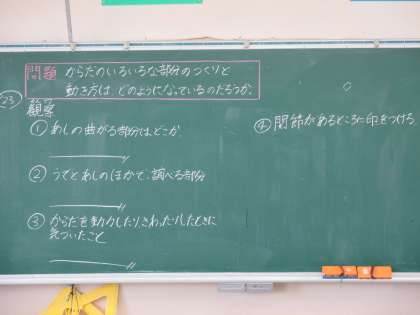 問題 からだのいろいろな部分のつくりと
動き方は、どのようになっているのだろうか。
23
観察
① あしの曲がる部分はどこか。
② うでとあしのほかで、調べる部分
③ からだを動かしたりさわったりしたときに
気づいたこと
④ 関節があるところに印をつける